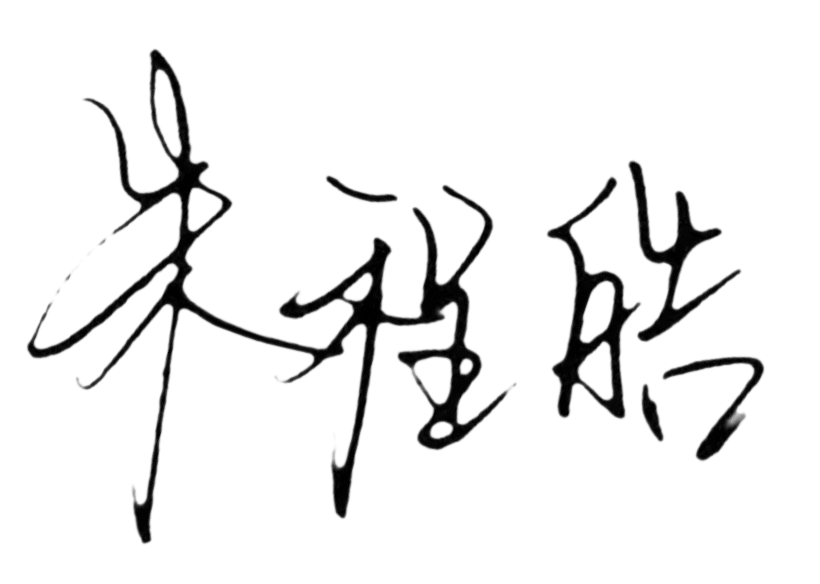 朱程皓